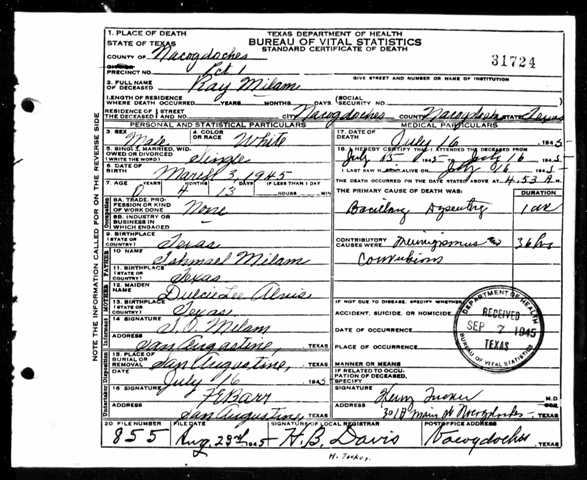 TEXAS DEPARTMENT OF HEALTH
BUREAU OF VITAL STATISTICS
STANDARD CERTIFICATE OF DEATH
31724
1. PLACE OF DEATH
STATE OF TEXAS
COUNTY OF Nacogdoches
PRECINCT NO. Pct 1
GIVE STREET AND NUMBER OR NAME OF INSTITUTION
2. FULL NAME OF DECEASED Ray Milam
LENGTH OF RESIDENCE WHERE DEATH OCCURRED YEARS MONTHS DAYS
SOCIAL SECURITY NO.
RESIDENCE OF THE DECEASED STREET NO. CITY Nacogdoches COUNTY Nacogdoches STATE Texas
PERSONAL AND STATISTICAL PARTICULARS
3. SEX Male
4. COLOR OR RACE White
5. SINGLE, MARRIED, WIDOWED OR DIVORCED (WRITE THE WORD) Single
6. DATE OF BIRTH March 3, 1945
7. AGE YEARS 0 MONTHS DAYS 13 IF LESS THAN 1 DAY HOURS MIN
8A. TRADE, PROFESSION OR KIND OF WORK DONE None
8B. INDUSTRY OR BUSINESS IN WHICH ENGAGED —
9. BIRTHPLACE (STATE OR COUNTRY) Texas
10. NAME Ishmael Milam
11. BIRTHPLACE (STATE OR COUNTRY) Texas
12. MAIDEN NAME Dulcie Lee
13. BIRTHPLACE (STATE OR COUNTRY) Texas
14. SIGNATURE Milam
ADDRESS San Augustine, TEXAS
15. PLACE OF BURIAL OR REMOVAL San Augustine, TEXAS
DATE July 16 1945
16. SIGNATURE Barr
ADDRESS San Augustine, TEXAS
MEDICAL PARTICULARS
17. DATE OF DEATH July 16 1945
18. I HEREBY CERTIFY THAT I ATTENDED THE DECEASED FROM
July 15 1945 TO July 16 1945
I LAST SAW H ALIVE ON July 16 1945
THE DEATH OCCURRED ON THE DATE STATED ABOVE AT 4:53
THE PRIMARY CAUSE OF DEATH WAS: DURATION
Bacillary Dysentery
CONTRIBUTORY CAUSES WERE 36 hrs
Convulsions
IF NOT DUE TO DISEASE, SPECIFY WHETHER:
ACCIDENT, SUICIDE, OR HOMICIDE
DATE OF OCCURRENCE
PLACE OF OCCURRENCE
MANNER OR MEANS
IF RELATED TO OCCUPATION OF DECEASED, SPECIFY
SIGNATURE Henry Tucker M.D.
ADDRESS Main St Nacogdoches TEXAS
DEPARTMENT OF HEALTH
RECEIVED
SEP 7 1945
TEXAS
BUREAU OF VITAL STATISTICS
20. FILE NUMBER 855
FILE DATE Aug. 23rd 1945
SIGNATURE OF LOCAL REGISTRAR H. B. Davis
POSTOFFICE ADDRESS Nacogdoches TEXAS
H. Tucker
WRITE THE INFORMATION CALLED FOR ON THE REVERSE SIDE
Occupation
FATHER
MOTHER
Informant
Undertaker Disposition